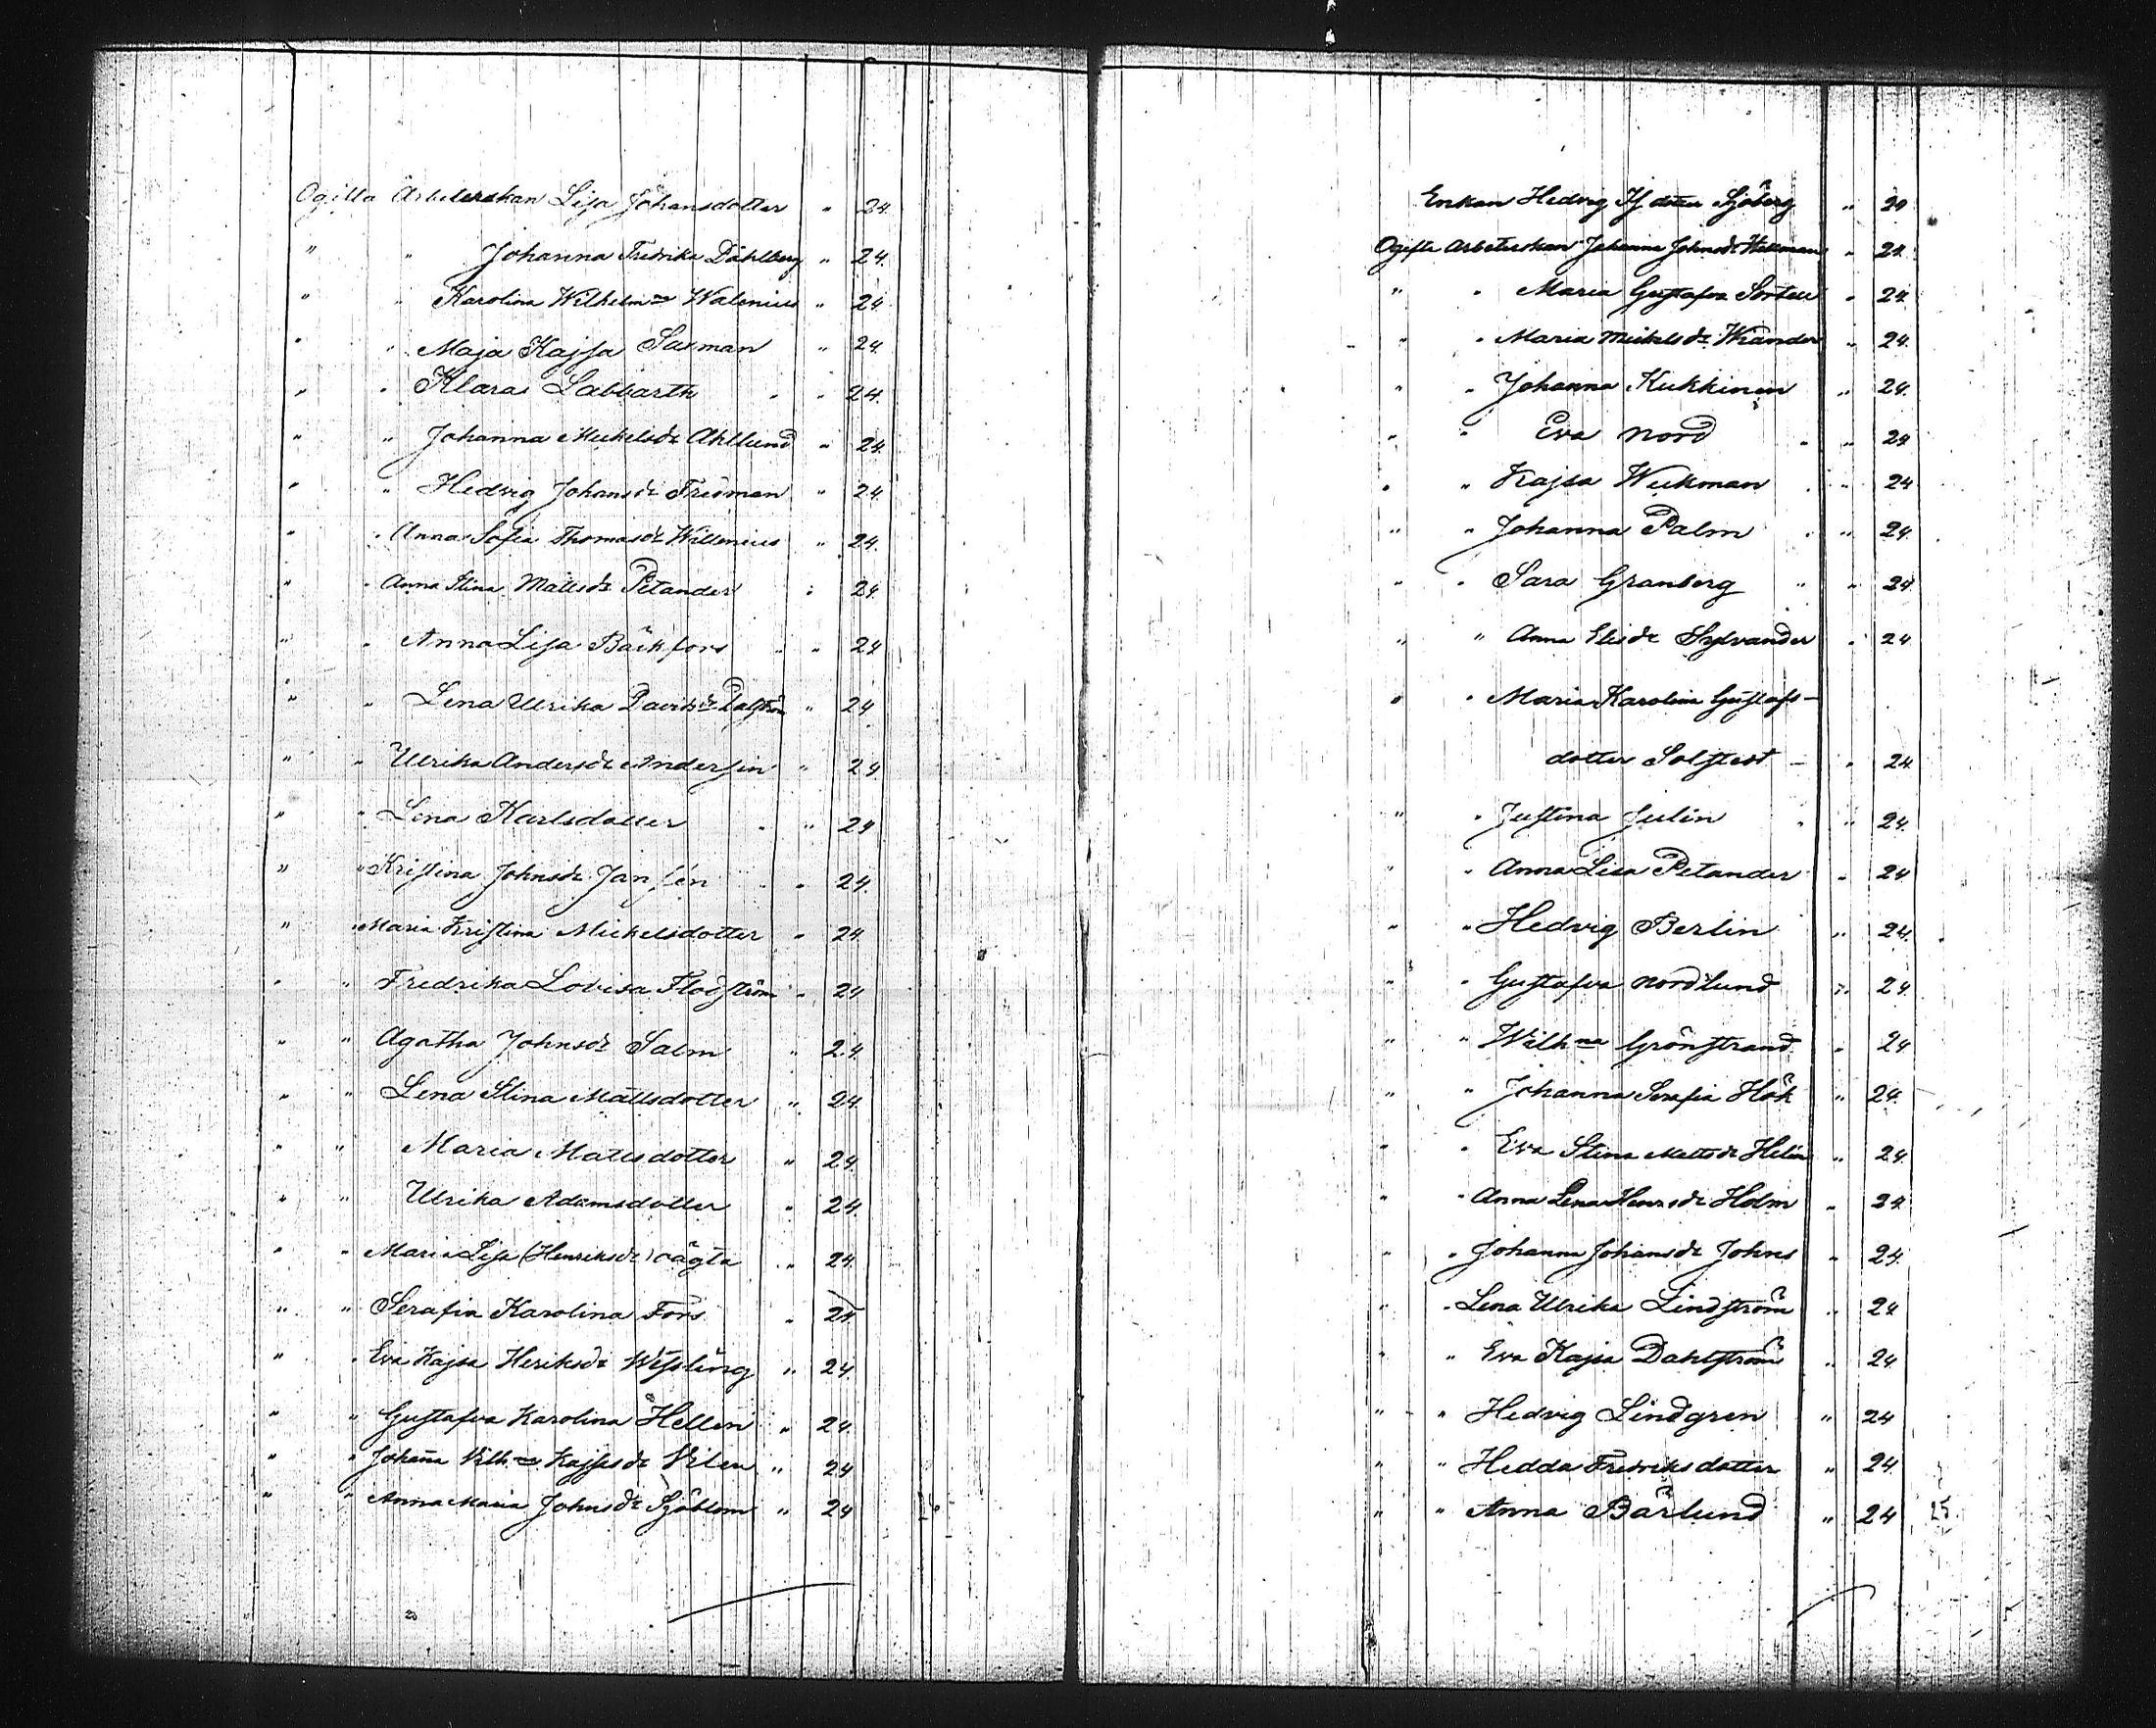 Ogifta Arbeterskan Lisa Johansdotter " 24.
" " Johanna Fredrika Dahlberg " 24.
" " Karolina Wilhelm=na Walenius " 24.
" " Maja Kajsa Saxman " 24.
" " Klara Labbarth " " 24.
" " Johanna Mickelsdr Ahllund " 24.
" " Hedvig Johansdr Fredman " 24.
" " Anna Sofia Thomasdr Willenius " 24.
" " Anna Stina Mattsdr Petander " 24.
" " Anna Lisa Bäckfors " " 24
" " Lena Ulrika Davidsdr " 24
" " Ulrika Andersdr Andersin " 24
" " Lena Karlsdotter " " 24
" " Kristina Johnsdr Jansén " " 24.
" " Maria Kristina Mickelsdotter " 24.
" " Fredrika Lovisa Flodström " 24
" " Agatha Johnsdr Salm " 24
" " Lena Stina Mattsdotter " 24.
" " Maria Mattsdotter " 24.
" " Ulrika Adamsdotter " 24.
" " Maria Lisa (Henriksdr) Vägta " 24.
" " Serafia Karolina Fors " 24
" " Eva Kajsa Heriksdr Wessling " 24.
" " Gustafva Karolina Hellén " 24.
" " Johana Vilh=na Kajsasdr Vilen " 24
" " Anna Maria Johnsdr Sjöblom " 24
Enkan Hedvig Isdotter Sjöberg " 24
Ogifta Arbeterskan Johanna Johnsdr Wickman " 24.
" " Maria Gustafva Sortell " 24.
" " Maria Mickelsdr Wiander " 24.
" " Johanna Kukkinen " 24.
" " Eva Nord " " 24
" " Kajsa Weckman " " 24
" " Johanna Palm " " 24.
" " Sara Granberg " " 24
" " Anna Elisdr Sylvander " 24
" " Maria Karolina Gustafs-
dotter Solstedt - " 24.
" " Justina Julin " " 24.
" " Anna Lisa Petander " 24
" " Hedvig Berlin " 24.
" " Gustafva Nordlund " 24.
" " Wilh=na Grönstrand " 24
" " Johanna Serafia Hök " 24.
" " Eva Stina Mattsdr Helin " 24.
" " Anna Lena Henrsdr Holm " 24.
" " Johanna Johansdr Johns " 24.
" " Lena Ulrika Lindström " 24
" " Eva Kajsa Dahlström " 24
" " Hedvig Lindgren " 24
" " Hedda Fredriksdotter " 24.
" " Anna Bärlund " 24 25.